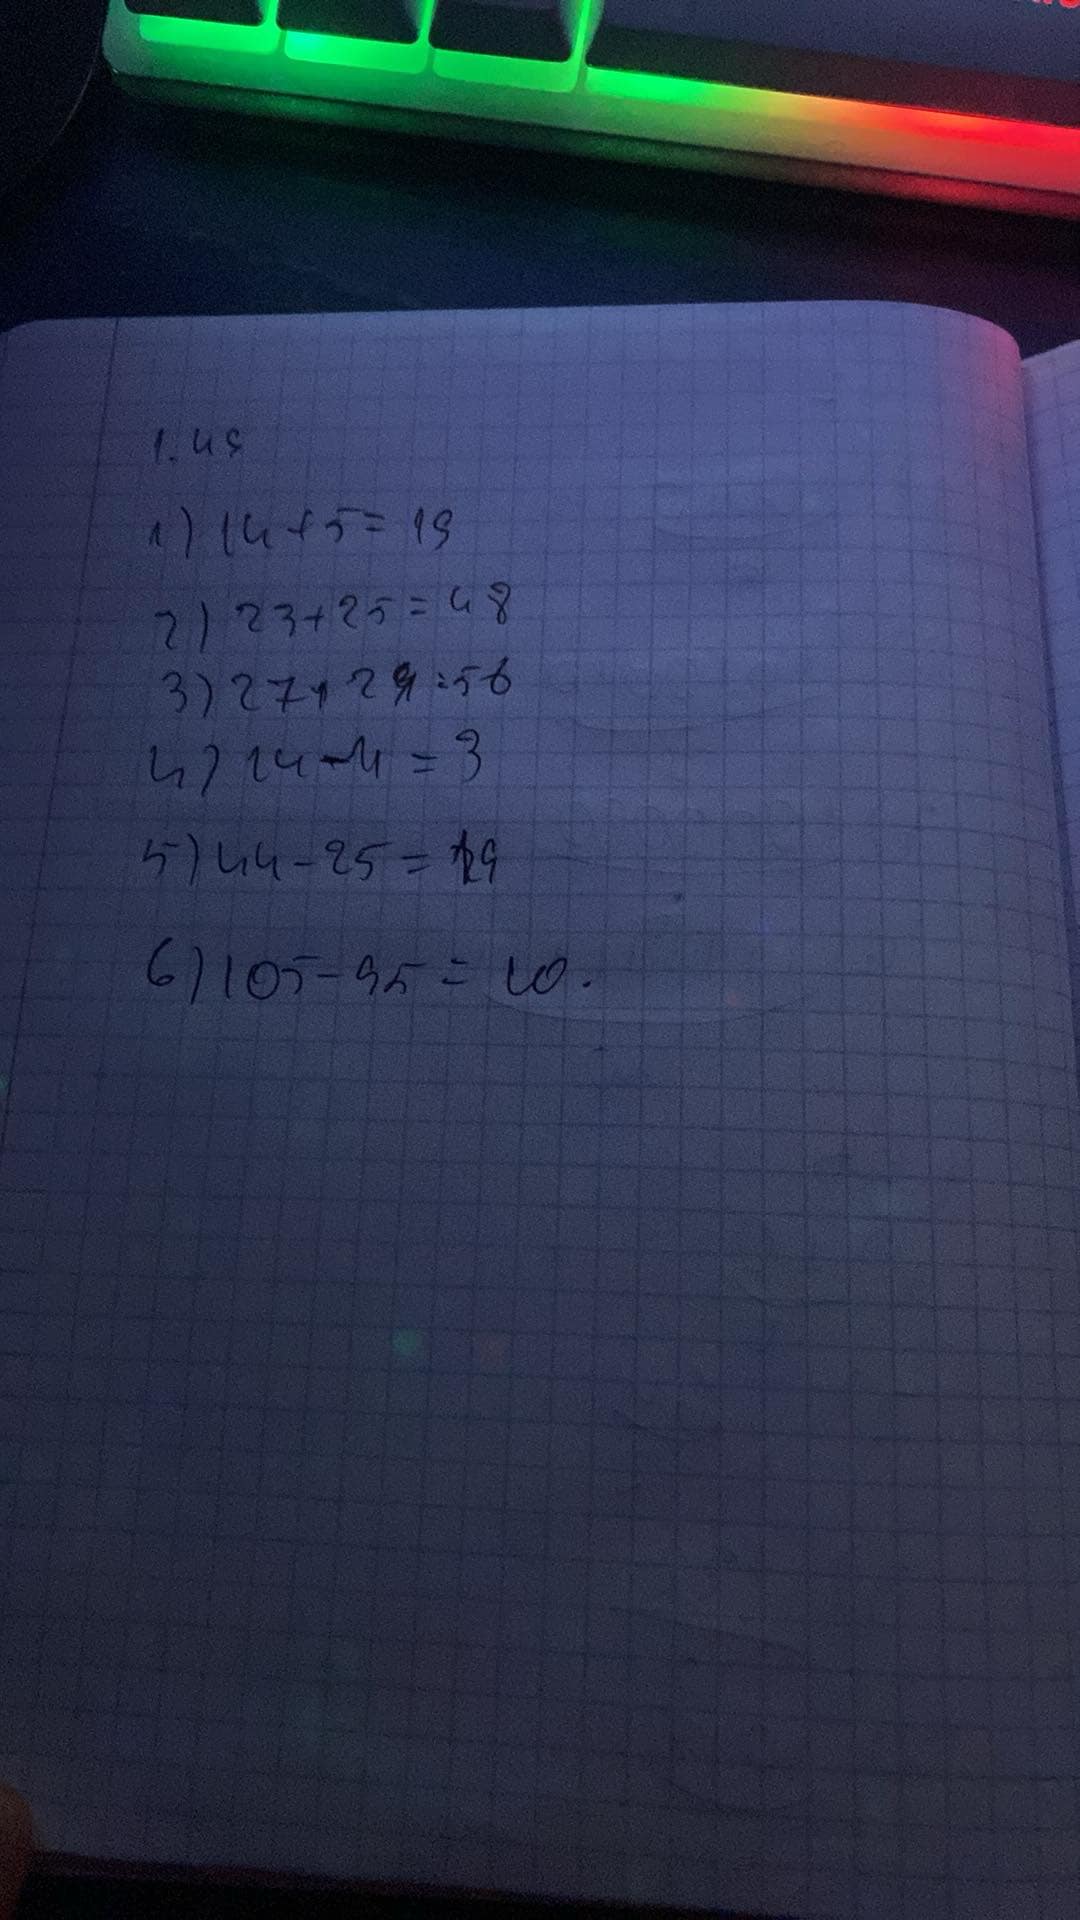 1.49
1) 14+5=19
2) 23+25=48
3) 27+29=56
4) 14-11=3
5) 44-25=19
6) 105-95=10.